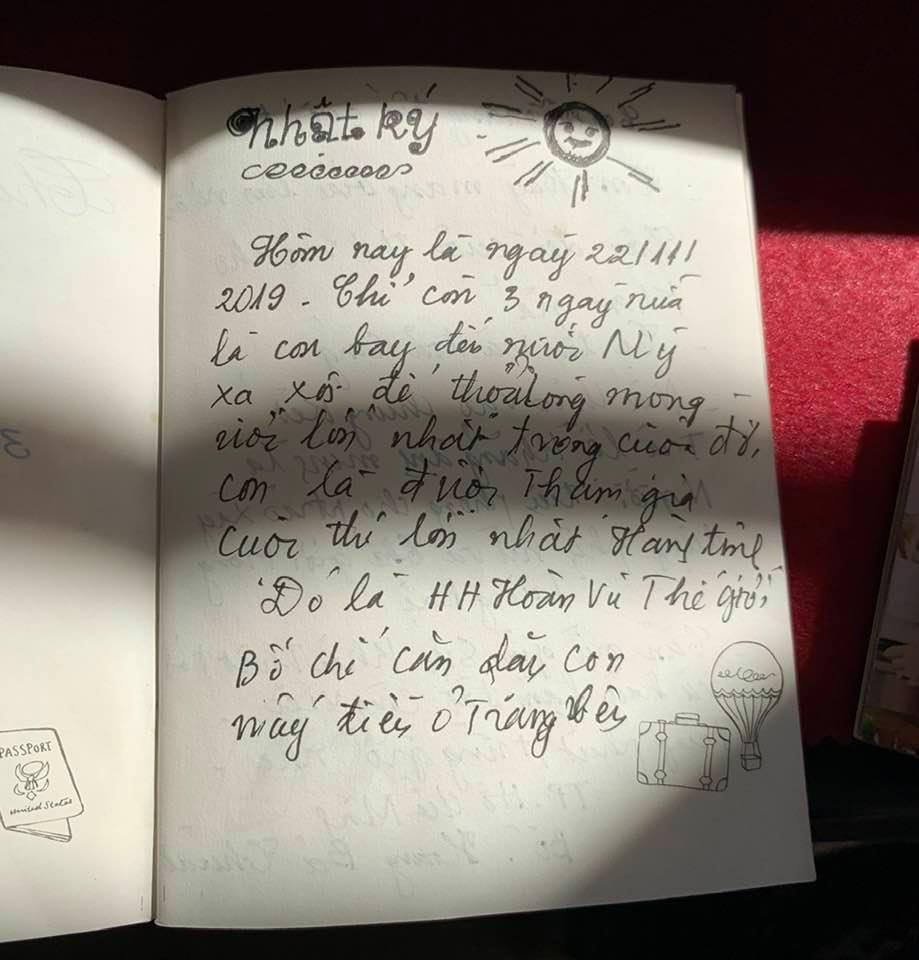 nhật ký
Hôm nay là ngày 22/11/
2019 - Chỉ còn 3 ngày nữa
là con bay đến nước Mỹ
xa xôi để thỏa lòng mong
ước lớn nhất trong cuộc đời,
con là được Tham gia
cuộc thi lớn nhất Hành tinh
Đó là HH Hoàn Vũ Thế giới,
Bố chỉ cần dạy con
mấy điều ở Trang bên
PASSPORT
United States
3